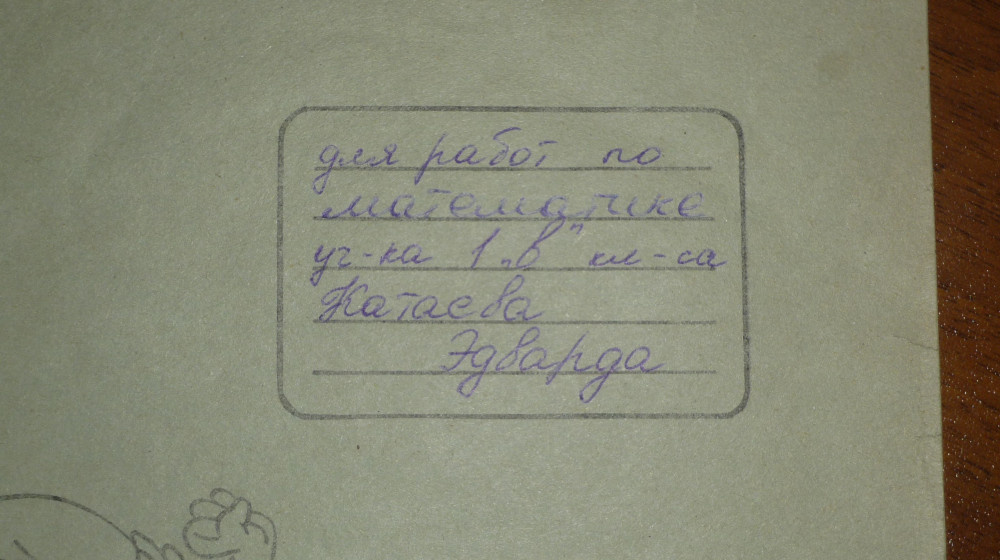 для работ по
математике
уч-ка 1 „в" кл-са
Катаева
Эдварда